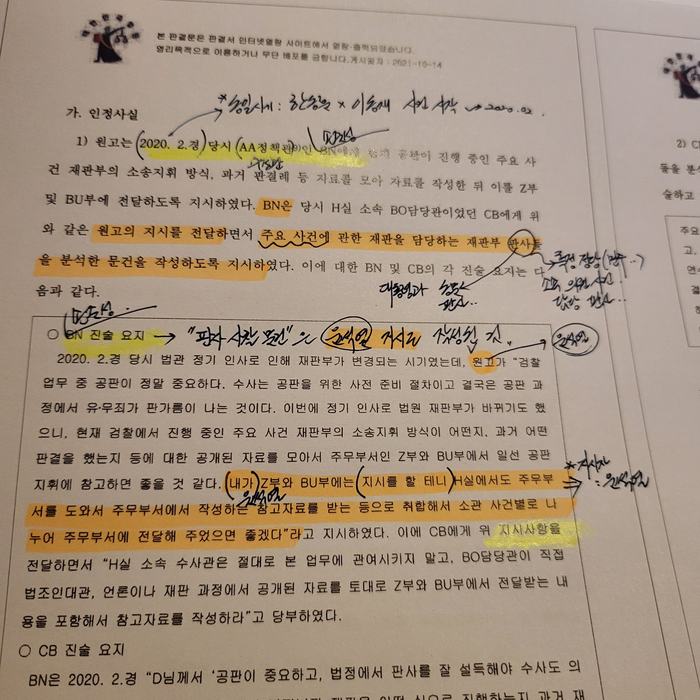 본 판결문은 판결서 인터넷열람 사이트에서 열람·출력되었습니다.
영리목적으로 이용하거나 무단 배포를 금합니다.게시일자 : 2021-10-14
가. 인정사실
* 동일시기 : 한동훈 x 이동재 사건 시작 → 2020. 02.
1) 원고는 (2020. 2.경) 당시 (AA정책관)인 BN에게 현재 공판이 진행 중인 주요 사
건 재판부의 소송지휘 방식, 과거 판결례 등 자료를 모아 자료를 작성한 뒤 이를 Z부
및 BU부에 전달하도록 지시하였다. BN은 당시 H실 소속 BO담당관이었던 CB에게 위
와 같은 원고의 지시를 전달하면서 주요 사건에 관한 재판을 담당하는 재판부 판사들
을 분석한 문건을 작성하도록 지시하였다. 이에 대한 BN 및 CB의 각 진술 요지는 다
음과 같다.
○ BN 진술 요지 → "판사 사찰 문건"은 윤석열 지시로 작성된 것.
윤석열
2020. 2.경 당시 법관 정기 인사로 인해 재판부가 변경되는 시기였는데, 원고가 "검찰
업무 중 공판이 정말 중요하다. 수사는 공판을 위한 사전 준비 절차이고 결국은 공판 과
정에서 유·무죄가 판가름이 나는 것이다. 이번에 정기 인사로 법원 재판부가 바뀌기도 했
으니, 현재 검찰에서 진행 중인 주요 사건 재판부의 소송지휘 방식이 어떤지, 과거 어떤
판결을 했는지 등에 대한 공개된 자료를 모아서 주무부서인 Z부와 BU부에서 일선 공판
지휘에 참고하면 좋을 것 같다. (내가) Z부와 BU부에는 (지시를 할 테니) H실에서도 주무부
* 지시자 : 윤석열
윤석열
서를 도와서 주무부서에서 작성하는 참고자료를 받는 등으로 취합해서 소관 사건별로 나
누어 주무부서에 전달해 주었으면 좋겠다"라고 지시하였다. 이에 CB에게 위 지시사항을
전달하면서 "H실 소속 수사관은 절대로 본 업무에 관여시키지 말고, BO담당관이 직접
법조인대관, 언론이나 재판 과정에서 공개된 자료를 토대로 Z부와 BU부에서 전달받는 내
용을 포함해서 참고자료를 작성하라"고 당부하였다.
○ CB 진술 요지
BN은 2020. 2.경 "D님께서 '공판이 중요하고, 법정에서 판사를 잘 설득해야 수사도 의
2) C
들을 분석
슬하고
주요
고,